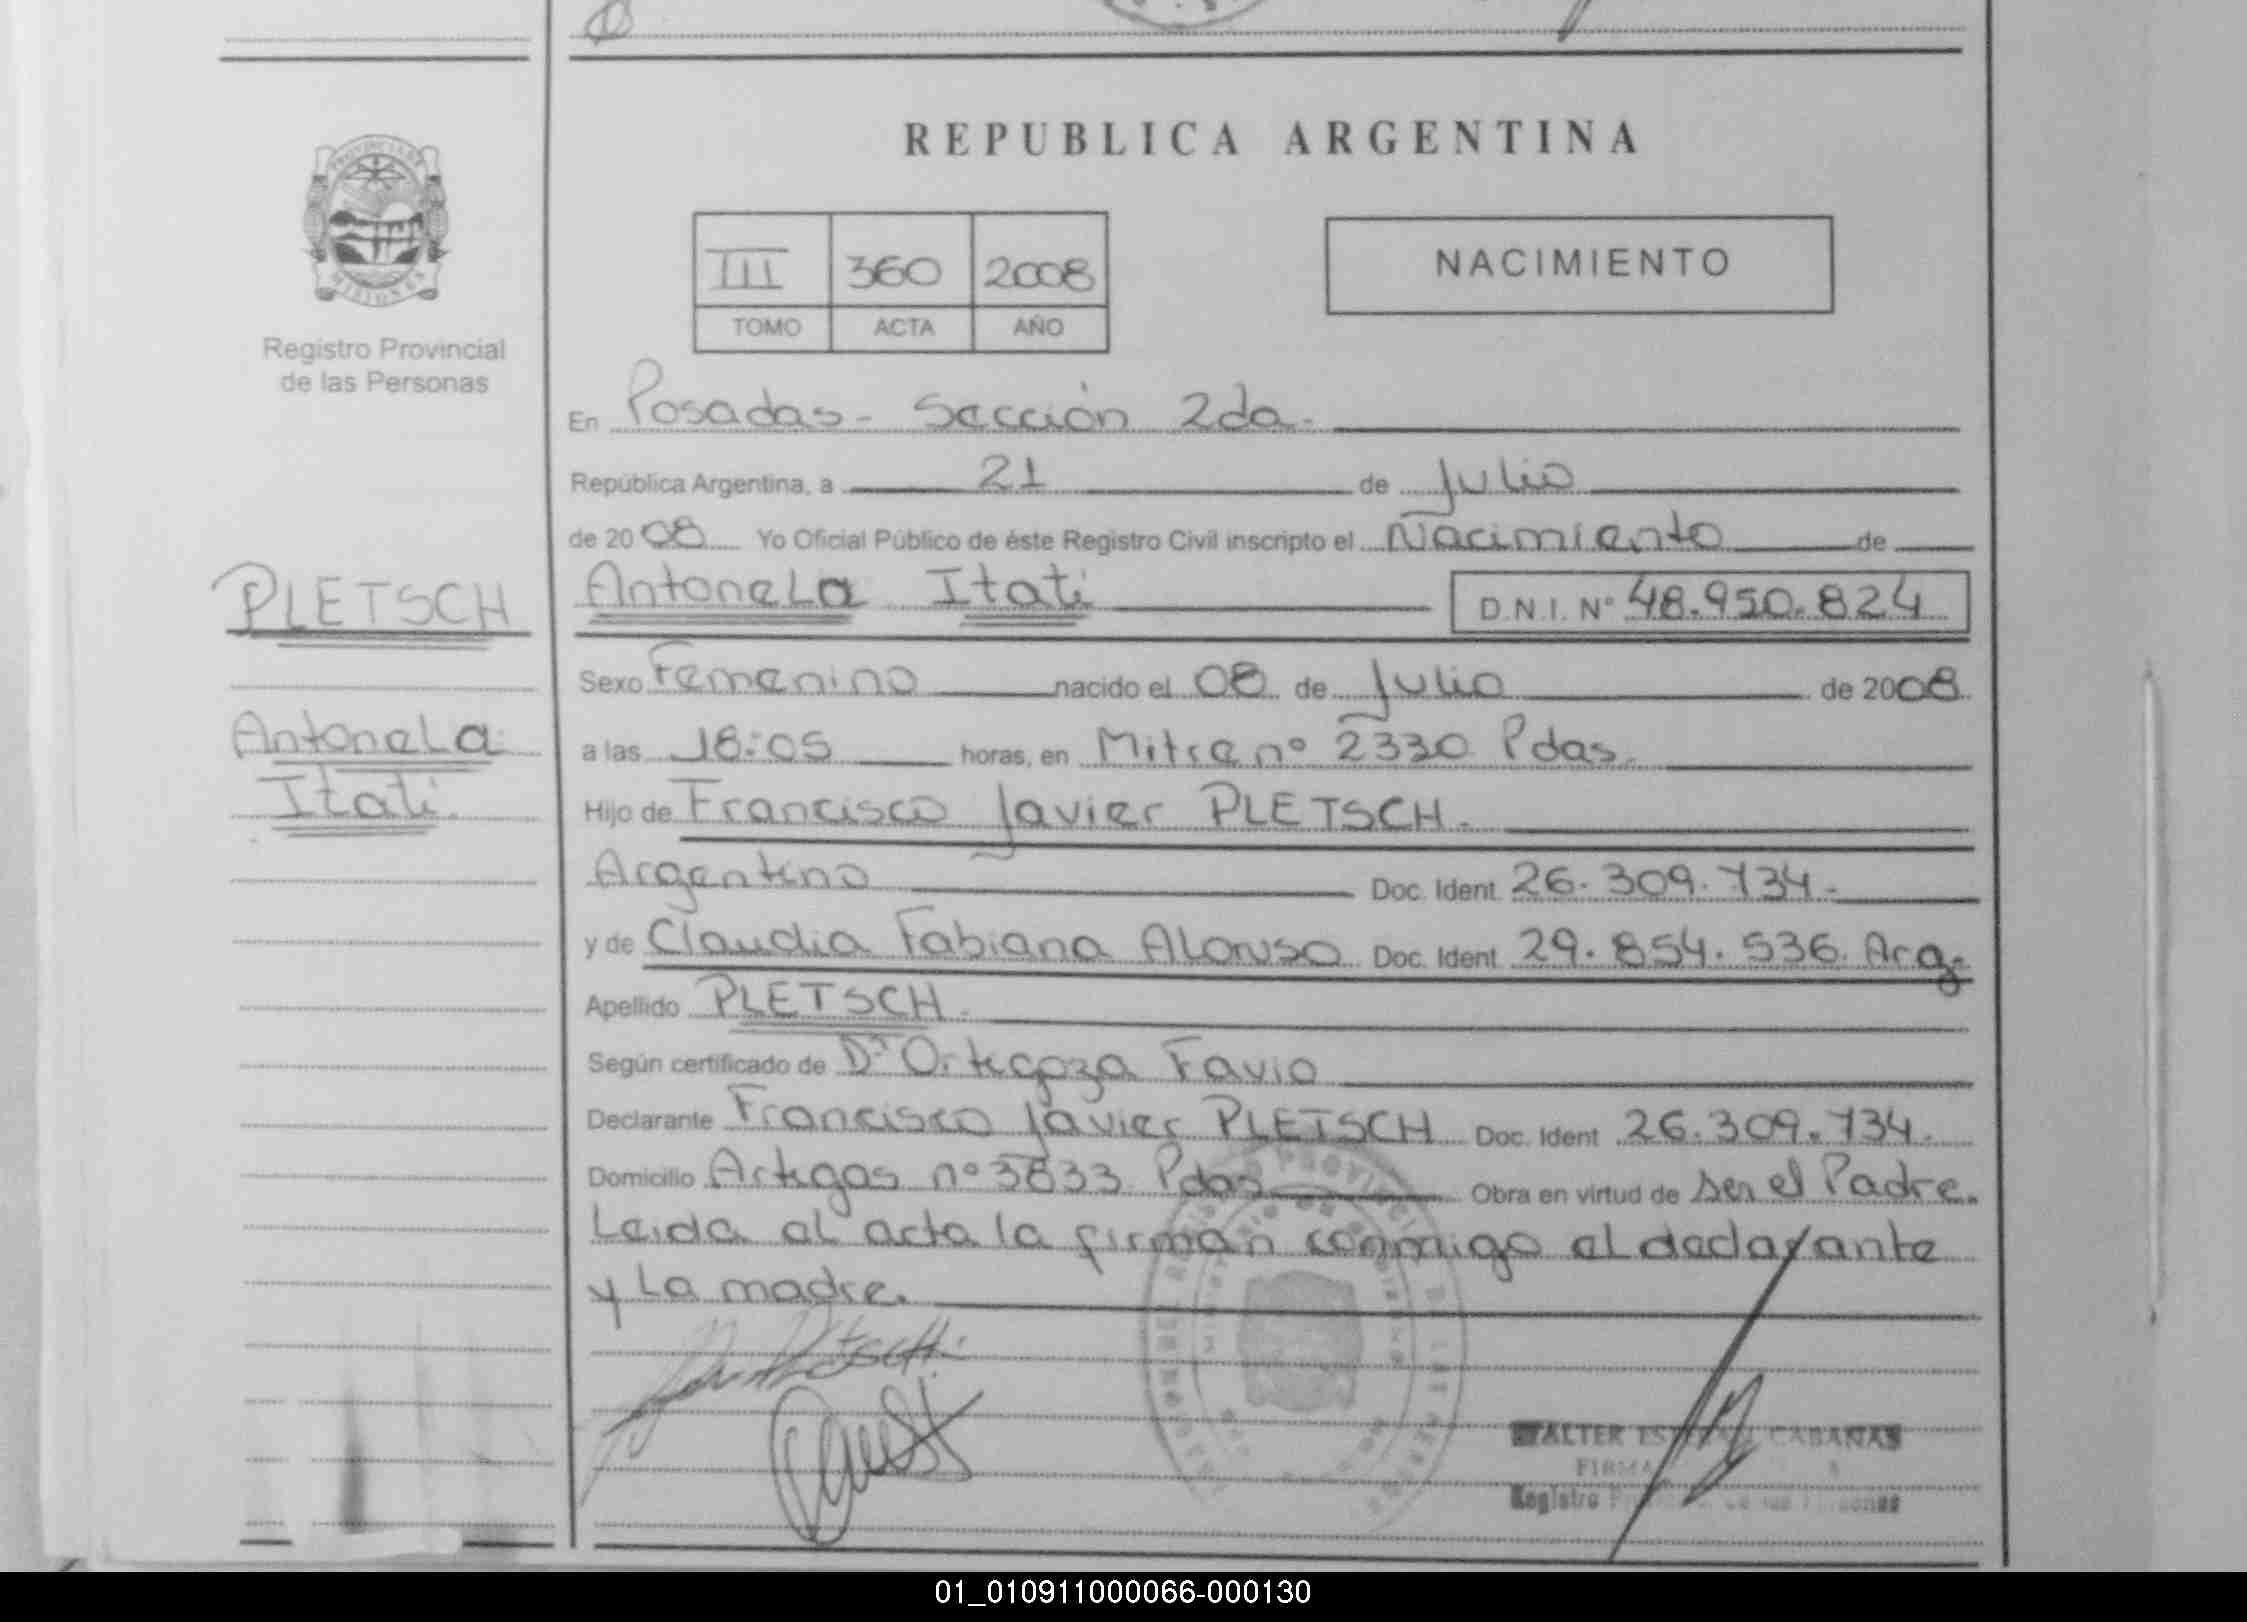 REPUBLICA ARGENTINA
PROVINCIA DE
MISIONES
Registro Provincial
de las Personas
III 360 2008
TOMO ACTA AÑO
NACIMIENTO
En Posadas - Sección 2da.
República Argentina, a 21 de Julio
de 2008 Yo Oficial Público de éste Registro Civil inscripto el Nacimiento de
PLETSCH
Antonela Itati D.N.I. Nº 48.950.824
Sexo Femenino nacido el 08 de Julio de 2008
Antonela
Itati.
a las 18:05 horas, en Mitre nº 2330 Pdas.
Hijo de Francisco Javier PLETSCH.
Argentino Doc. Ident. 26.309.734.
y de Claudia Fabiana Alonso Doc. Ident. 29.854.536. Arg.
Apellido PLETSCH.
Según certificado de Dr Ortegoza Favio
Declarante Francisco Javier PLETSCH Doc. Ident. 26.309.734.
Domicilio Artigas nº 3833 Pdas Obra en virtud de ser el Padre.
Leida el acta la firman conmigo el declarante
y la madre.
WALTER ESTEBAN CABAÑAS
FIRMA
Registro de las Personas
01_010911000066-000130